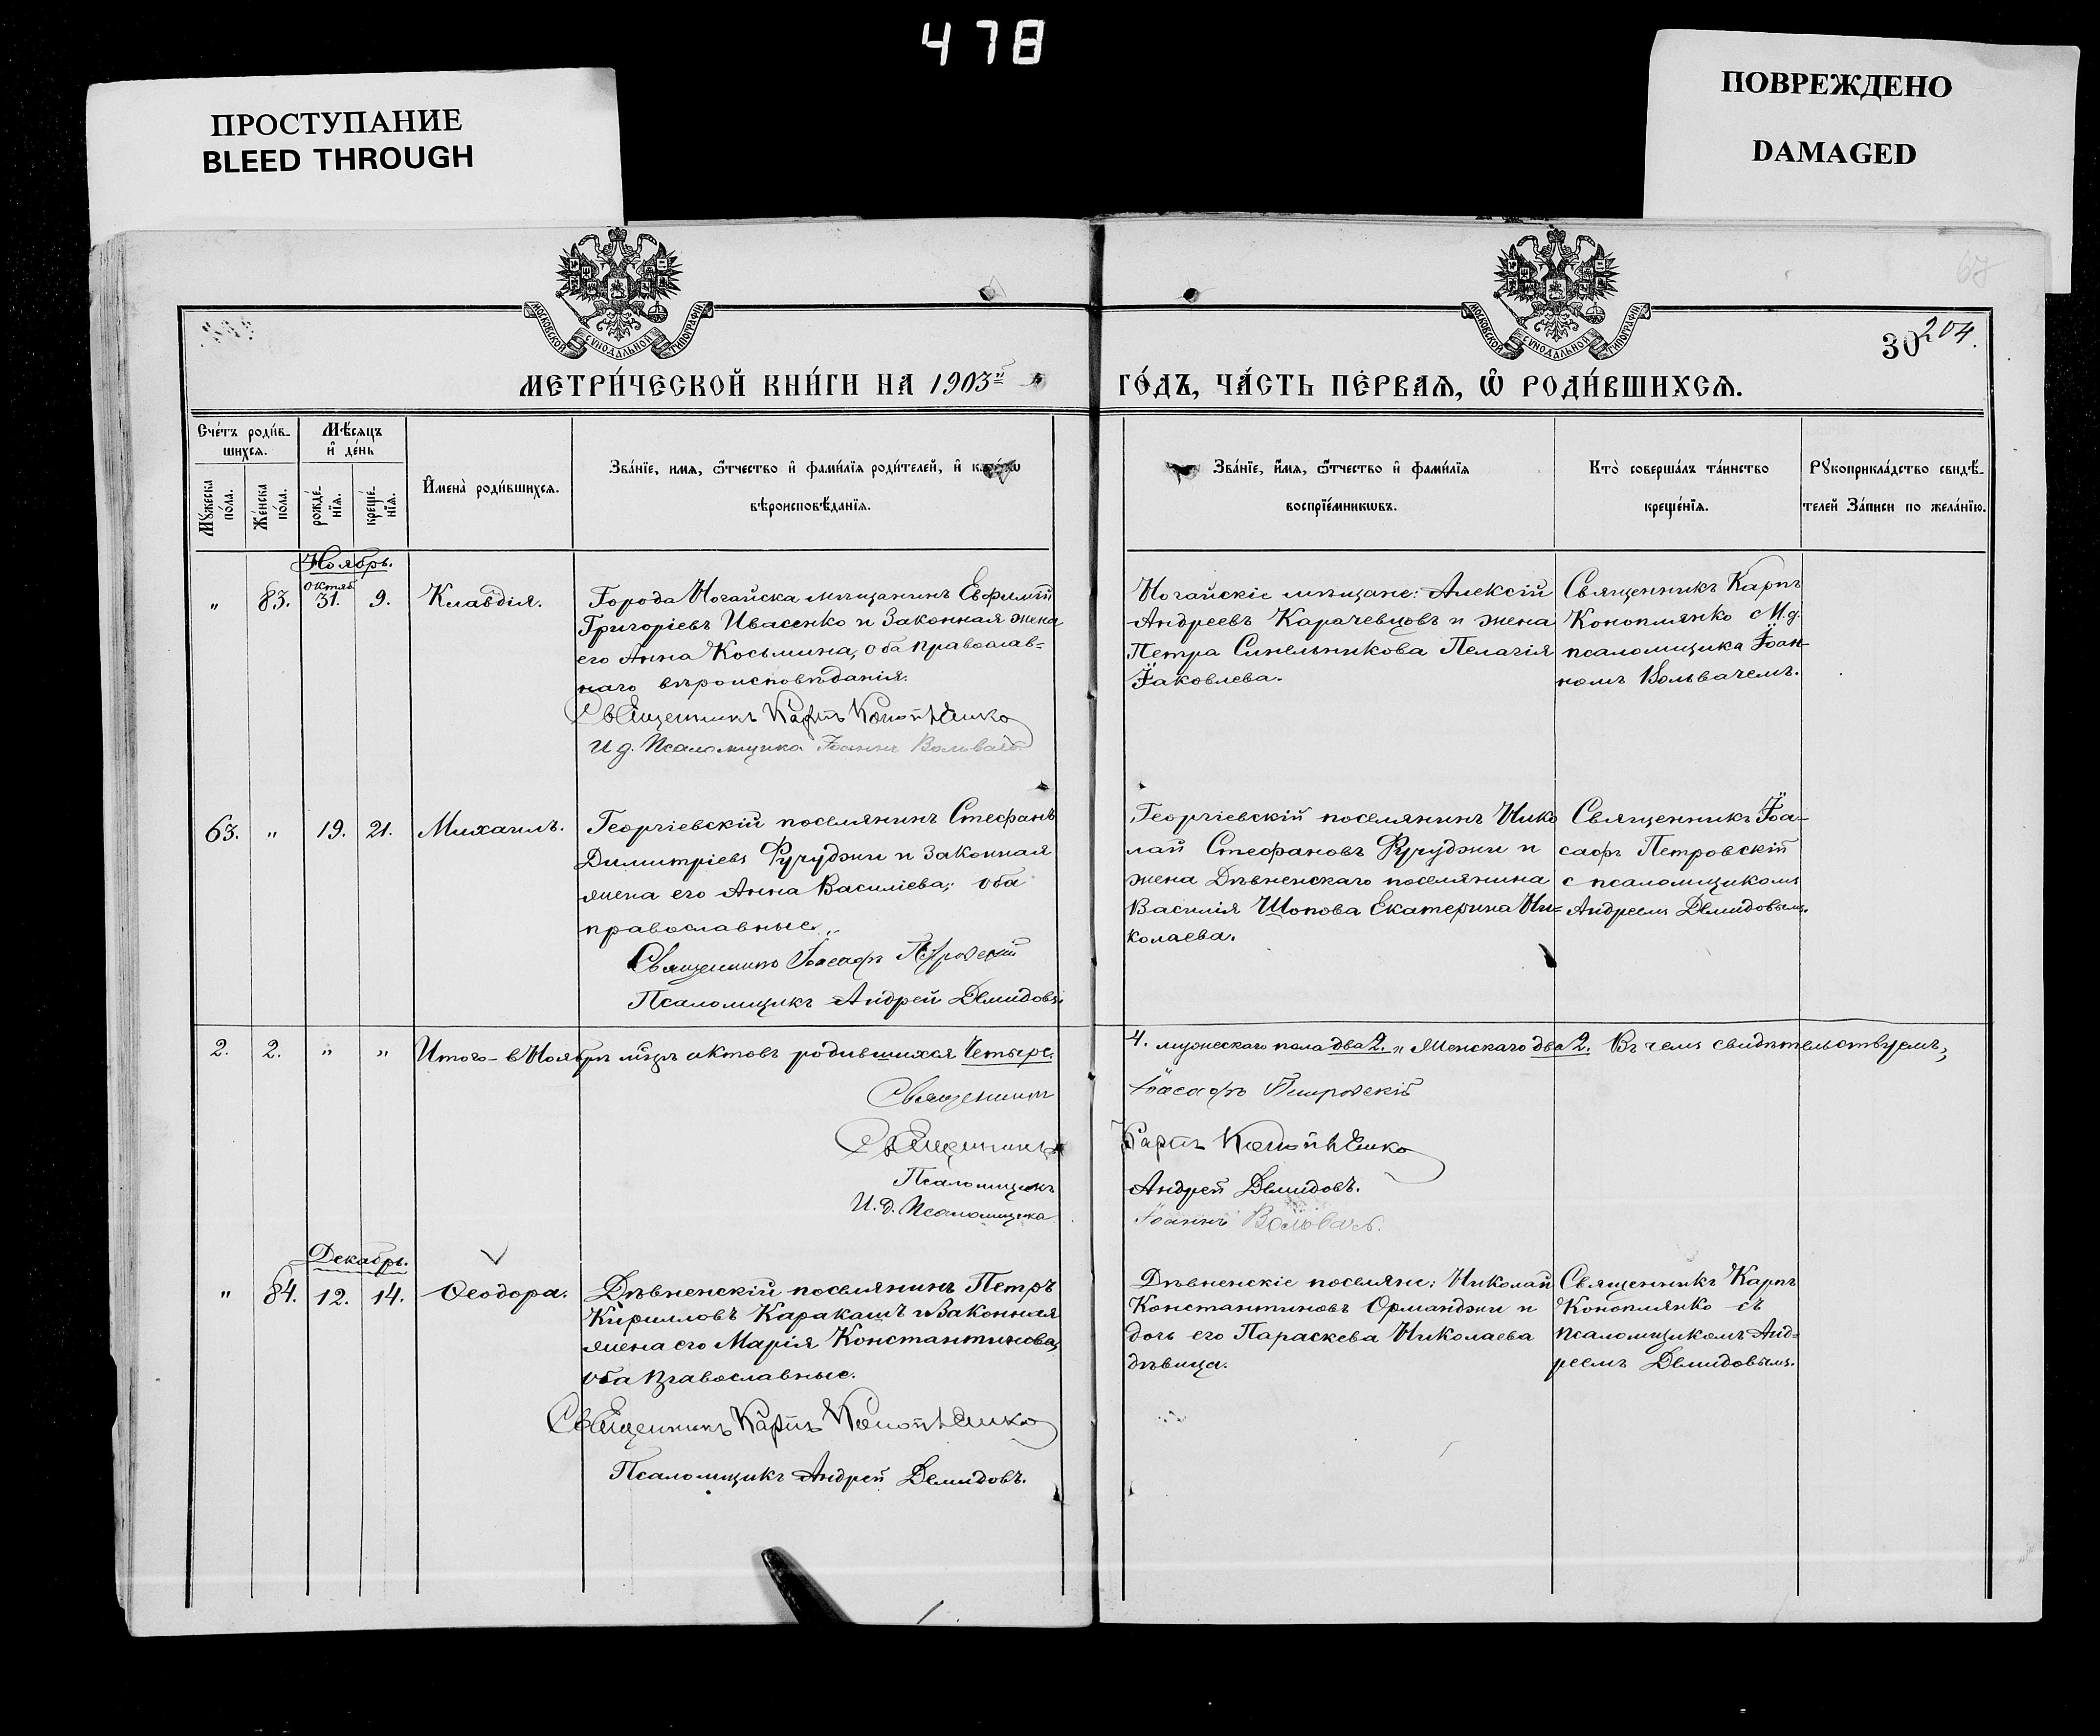 478
ПРОСТУПАНИЕ
BLEED THROUGH
ПОВРЕЖДЕНО
DAMAGED
67
МОСКОВСКОЙ СѴНОДАЛЬНОЙ ТИПОГРАФІИ
МОСКОВСКОЙ СѴНОДАЛЬНОЙ ТИПОГРАФІИ
30 204.
МЕТРИ́ЧЕСКОЙ КНИ́ГИ НА 1903й
ГО́ДЪ, ЧА́СТЬ ПЕ́РВАѦ, Ѽ РОДИ́ВШИХСѦ.
Сче́тъ роди́в-
шихсѧ.
Мꙋ́жеска по́ла.
Же́нска по́ла.
Мѣ́сѧцъ
и҆ де́нь
рожде́-нїѧ.
креще́-нїѧ.
И҆мена̀ роди́вшихсѧ.
Зва́нїе, имѧ, ѻ҆́тчество и҆ фами́лїѧ роди́телей, и҆
вѣроисповѣ́данїѧ.
Зва́нїе, и҆́мѧ, ѻ҆́тчество и҆ фами́лїѧ
воспрїе́мникѡвъ.
Кто̀ соверша́лъ та́инство
креще́нїѧ.
Рꙋкоприкла́дство свидѣ́-
телей За́писи по жела́нїю.
Ноябрь.
Октяб.
" 83. 31. 9. Клавдія.
Города Ногайска мѣщанинъ Евфимій
Григоріевъ Ивасенко и законная жена
его Анна Косьмина, оба православ=
наго вѣроисповѣданія.
Священникъ Карпъ Коноплянко
И д. Псаломщика Іоаннъ Вольвачъ
Ногайскіе мѣщане: Алексій
Андреевъ Карачевцовъ и жена
Петра Синельникова Пелагія
Іаковлева.
Священникъ Карпъ
Коноплянко И.д.
псаломщика Іоан-
номъ Вольвачемъ.
63. " 19. 21. Михаилъ.
Георгіевскій поселянинъ Стефанъ
Димитріевъ Ручуджи и законная
жена его Анна Василіева; оба
православные.
Священникъ Іоасафъ Петровскій
Псаломщикъ Андрей Демидовъ
Георгіевскій поселянинъ Нико
лай Стефановъ Ручуджи и
жена Дѣвненскаго поселянина
Василія Шопова Екатерина Ни=
колаева.
Священникъ Іоа-
сафъ Петровскій
с псаломщикомъ
Андреемъ Демидовымъ.
2. 2. " " Итого - в Ноябрѣ м̃цѣ актовъ родившихся Четыре.
4. мужескаго пола два 2. и Женскаго два 2. Въ чемъ свидѣтельствуемъ;
Священникъ Іоасафъ Петровскій
Священникъ Карпъ Коноплянко
Псаломщикъ Андрей Демидовъ.
И.д. Псаломщика Іоаннъ Вольвачъ.
Декабрь.
" 84. 12. 14. Ѳеодора.
Дѣвненскій поселянинъ Петръ
Кирилловъ Каракашъ и Законная
жена его Марія Константинова,
оба православные.
Священникъ Карпъ Коноплянко
Псаломщикъ Андрей Демидовъ.
Дѣвненскіе поселяне: Николай
Константиновъ Орманджи и
дочь его Параскева Николаева
дѣвица.
Священникъ Карпъ
Коноплянко съ
псаломщикомъ Анд=
реемъ Демидовымъ.